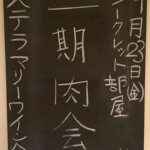 月23日(金)
シークレット部屋
一期肉会
ステラマリーワイン